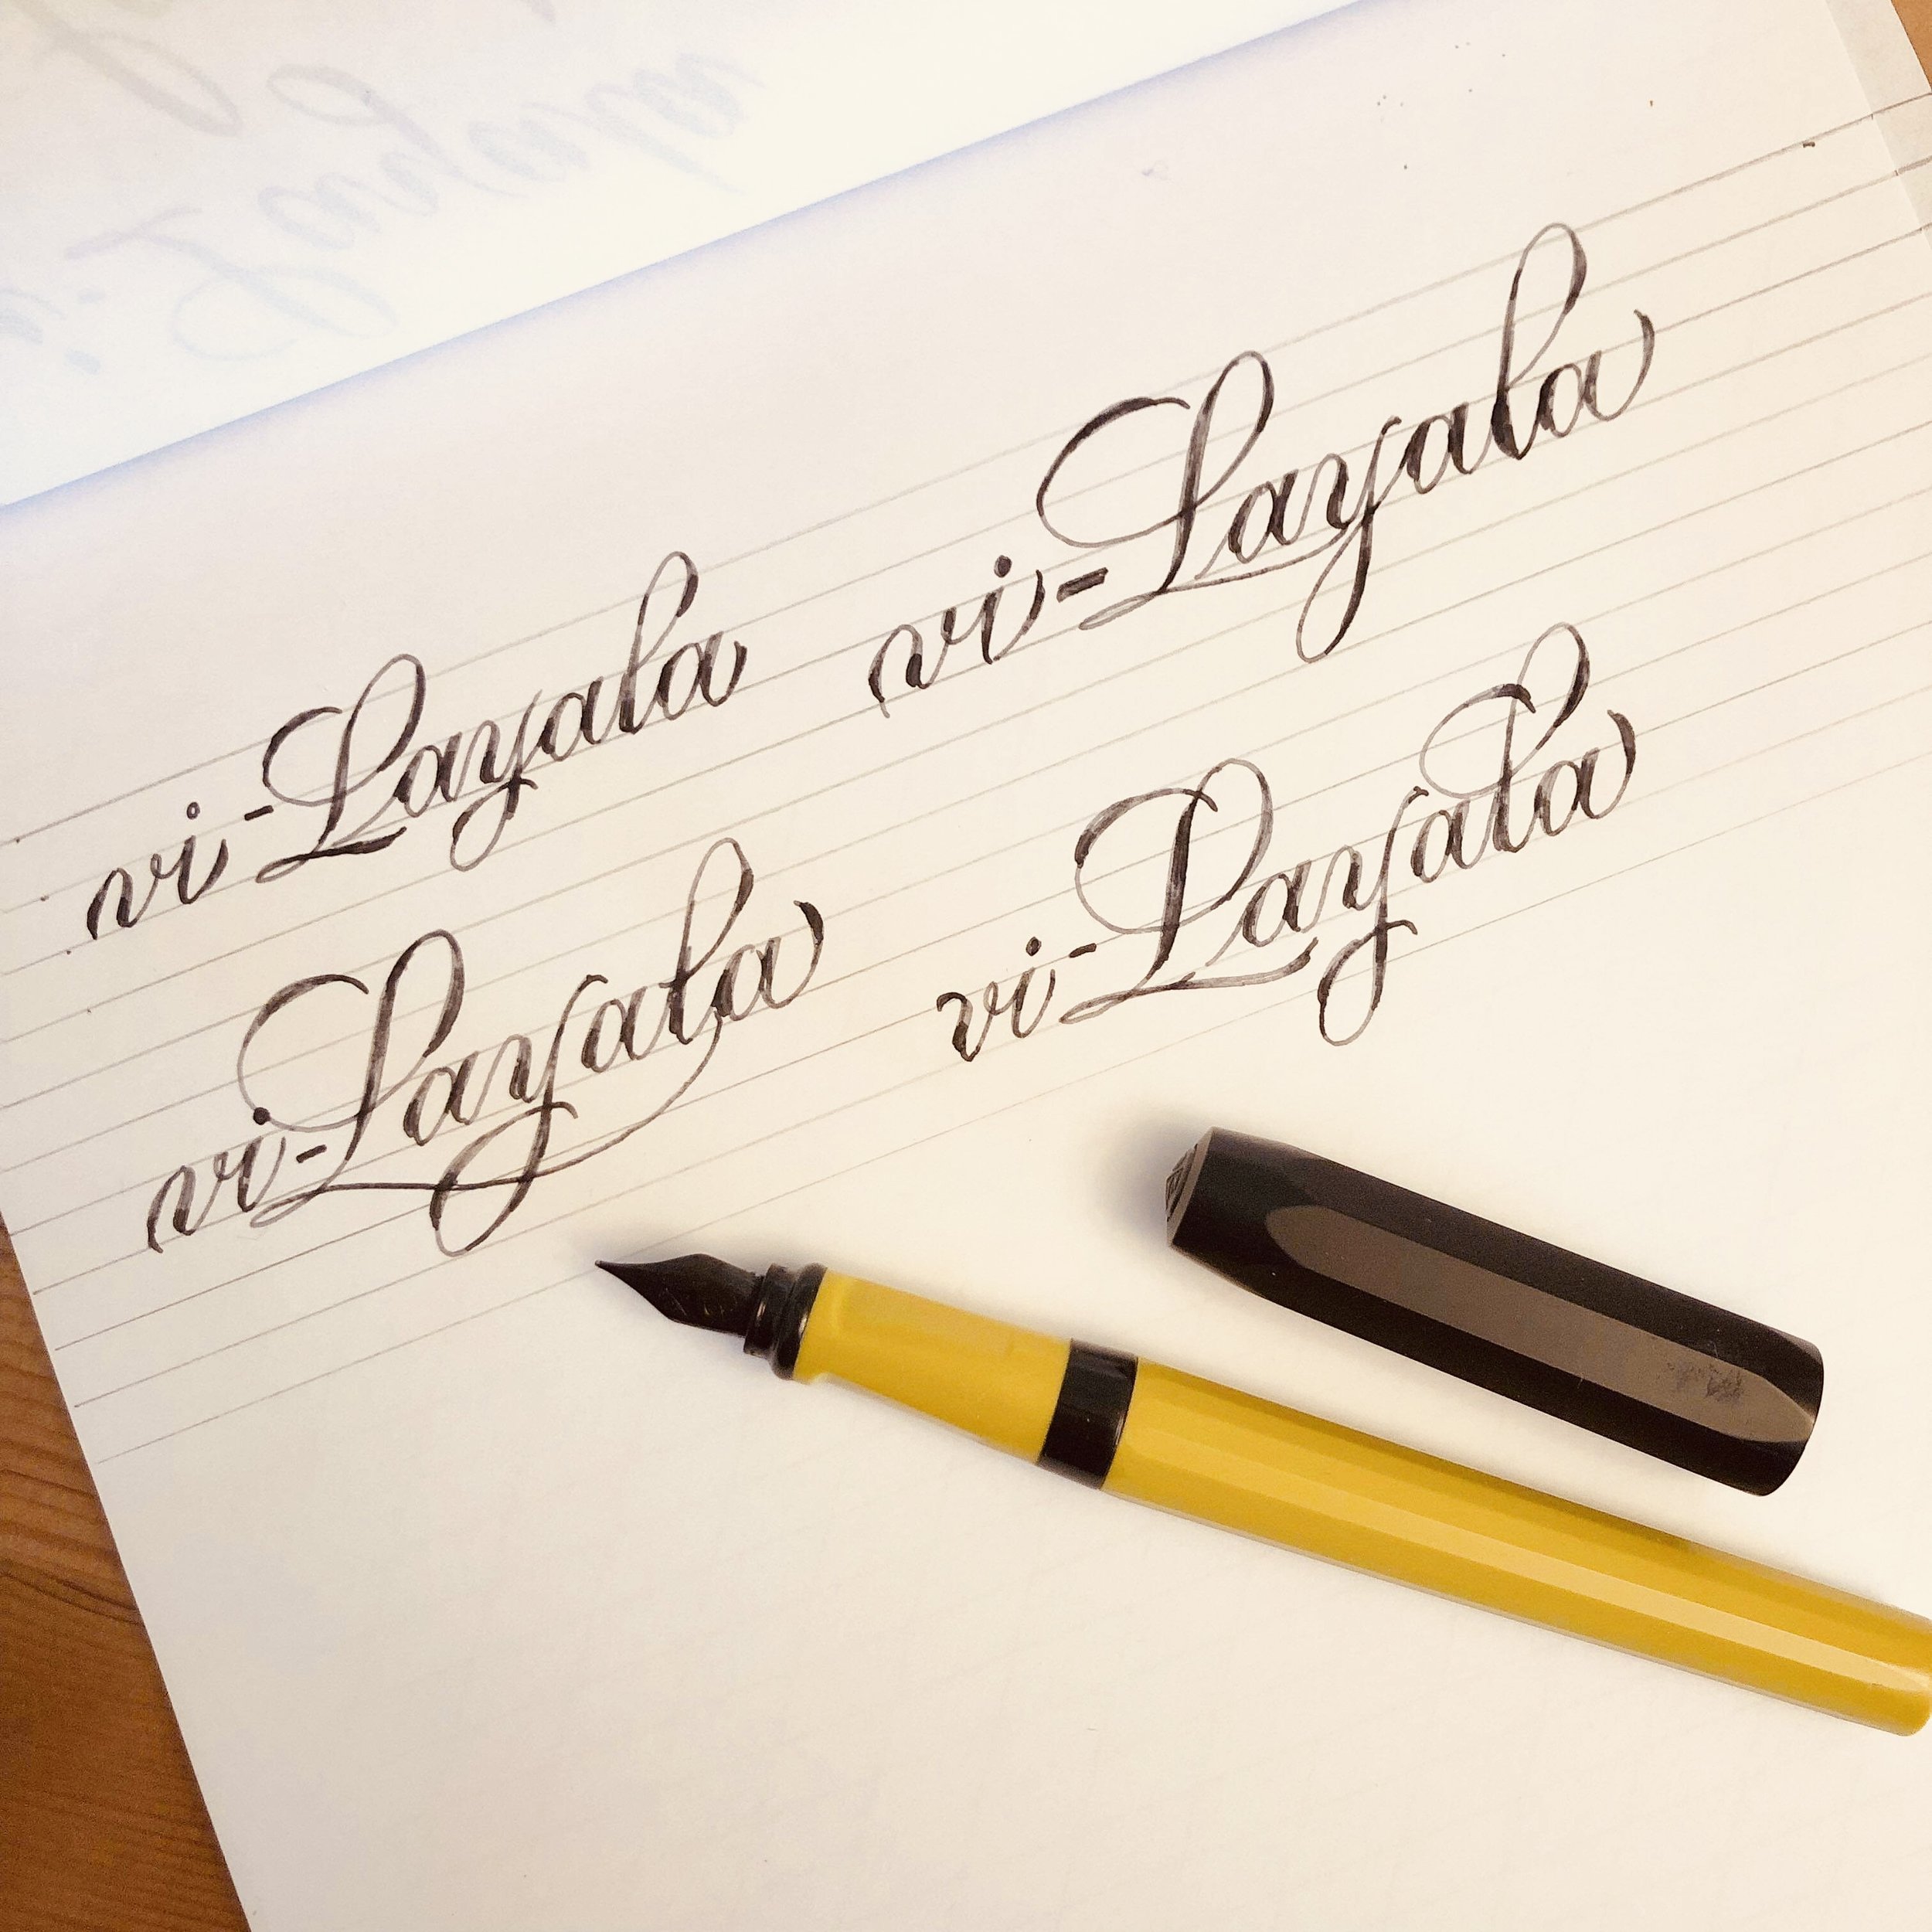 vi-Layala vi-Layala
vi-Layala vi-Layala